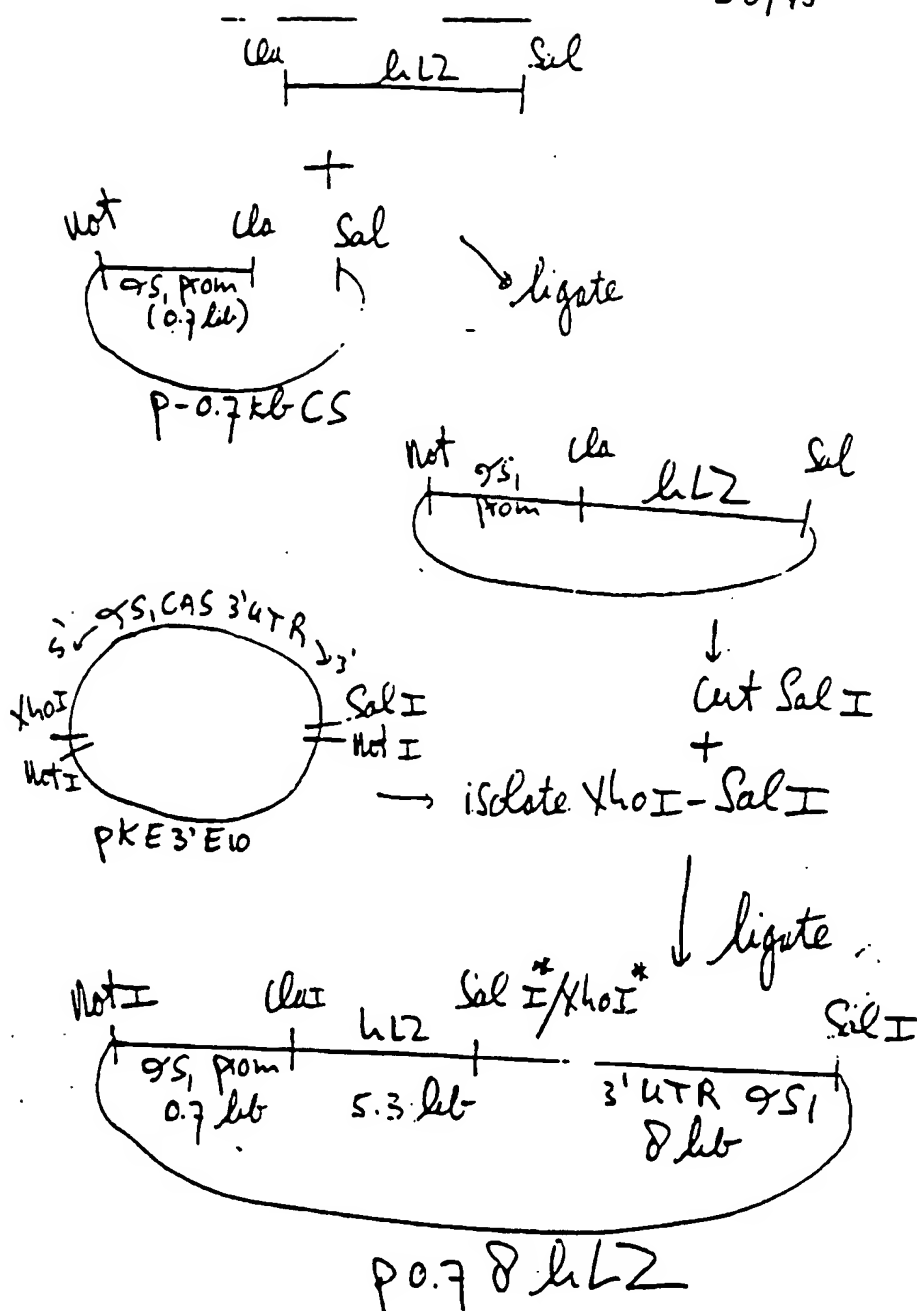 Cla hLZ Sal
+
Not Cla Sal
αS₁ prom
(0.7 kb)
ligate
p-0.7 kb CS
Not αS₁ prom Cla hLZ Sal
5' αS₁ CAS 3'UTR 3'
XhoI
NotI
Sal I
Not I
pKE3'E10
Cut Sal I
+
isolate XhoI-Sal I
ligate
NotI ClaI hLZ Sal I*/XhoI* Sal I
αS₁ prom
0.7 kb
5.3 kb
3' UTR αS₁
8 kb
p0.7 8 hLZ